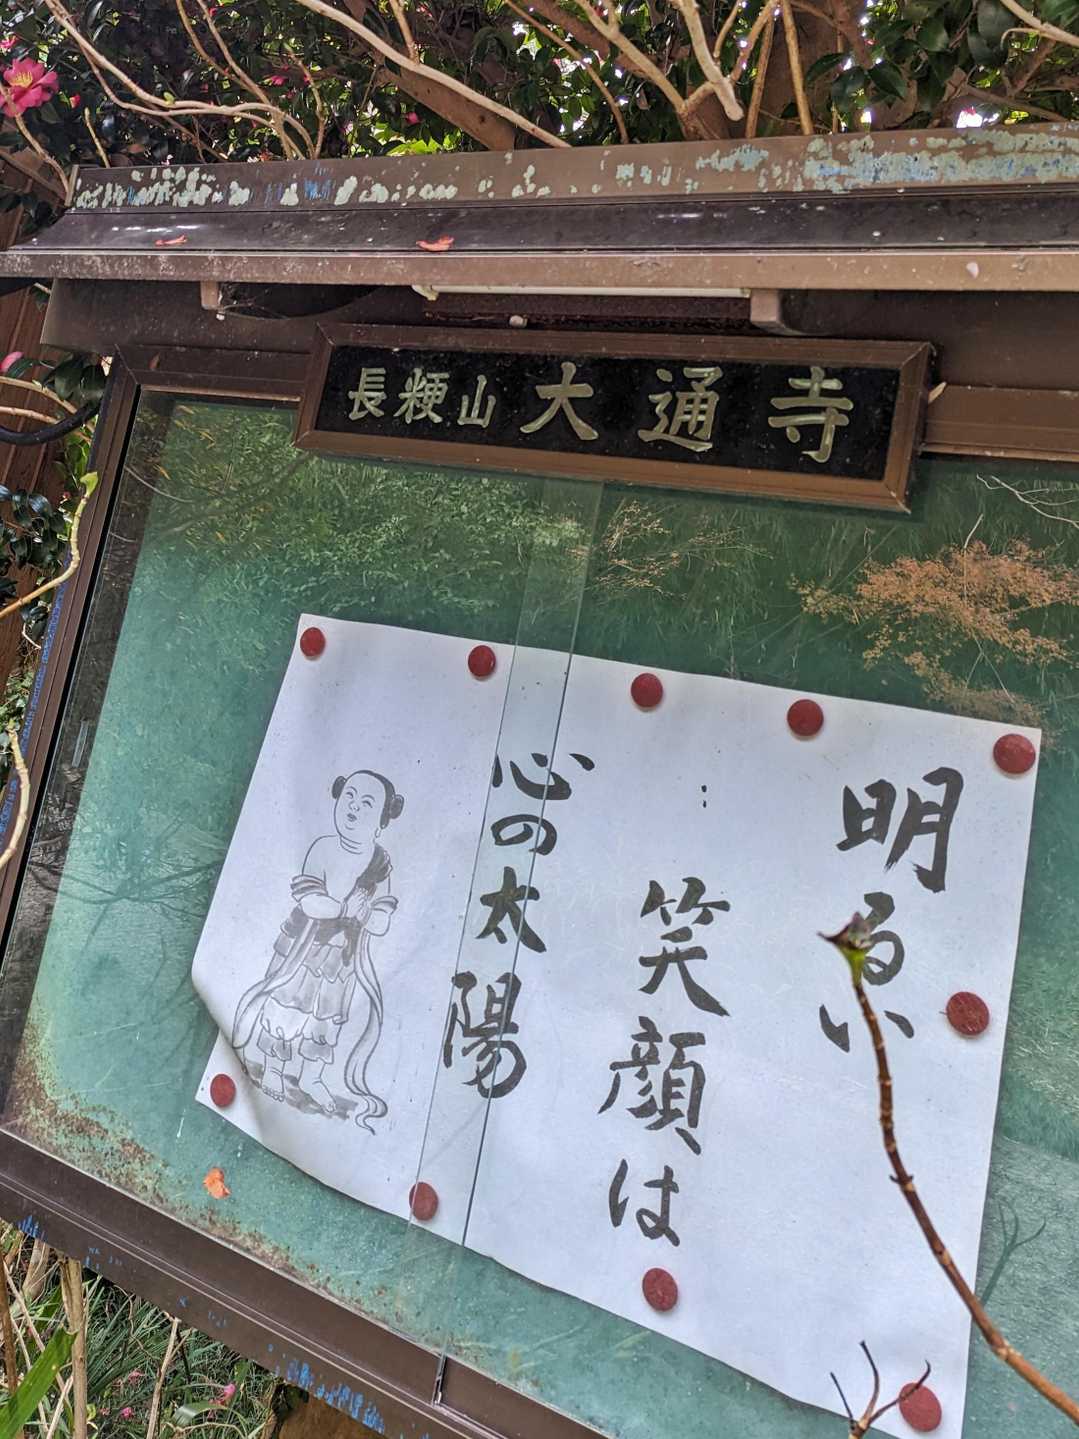 長粳山 大通寺
明るい
笑顔は
心の太陽